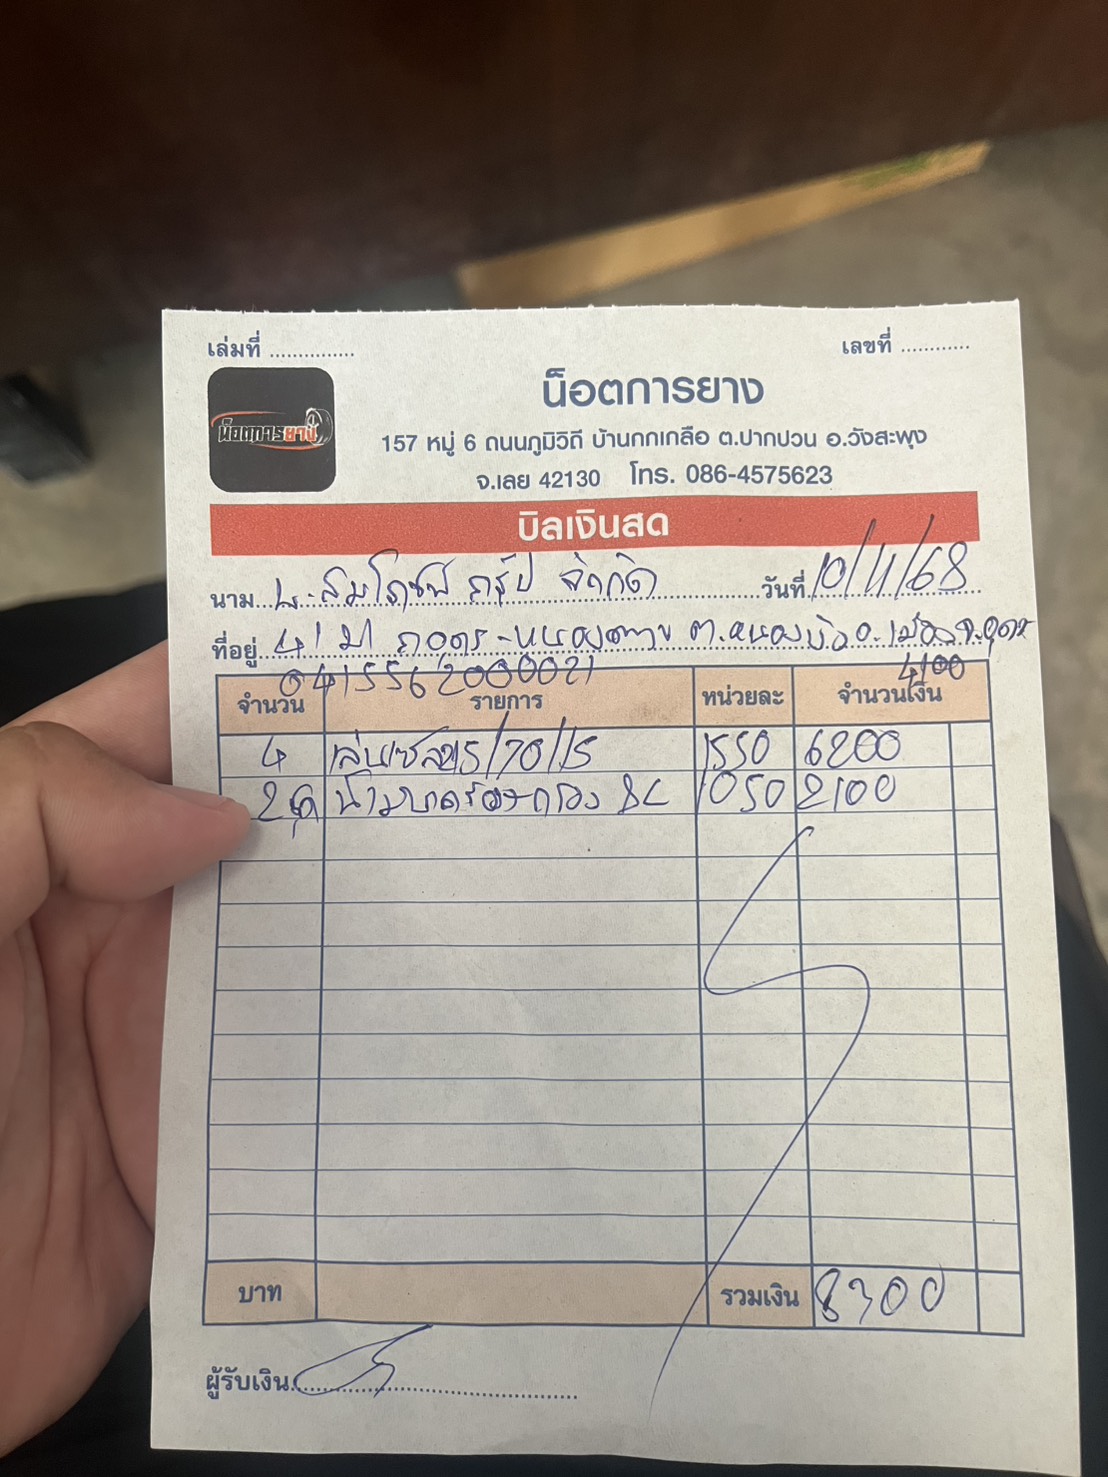 เล่มที่ ............... เลขที่ ............
น็อตการยาง
น็อตการยาง
157 หมู่ 6 ถนนภูมิวิถี บ้านกกเกลือ ต.ปากปวน อ.วังสะพุง
จ.เลย 42130 โทร. 086-4575623
บิลเงินสด
นาม กรุ๊ป จำกัด วันที่ 10/11/68
ที่อยู่ 41 ม1 ถ.อุดร- ต.หนองบัว อ.เมือง จ.อุดร
0415562000021 4100
จำนวน รายการ หน่วยละ จำนวนเงิน
4 215/70/15 1550 6200
2 1050 2100
บาท รวมเงิน 8300
ผู้รับเงิน